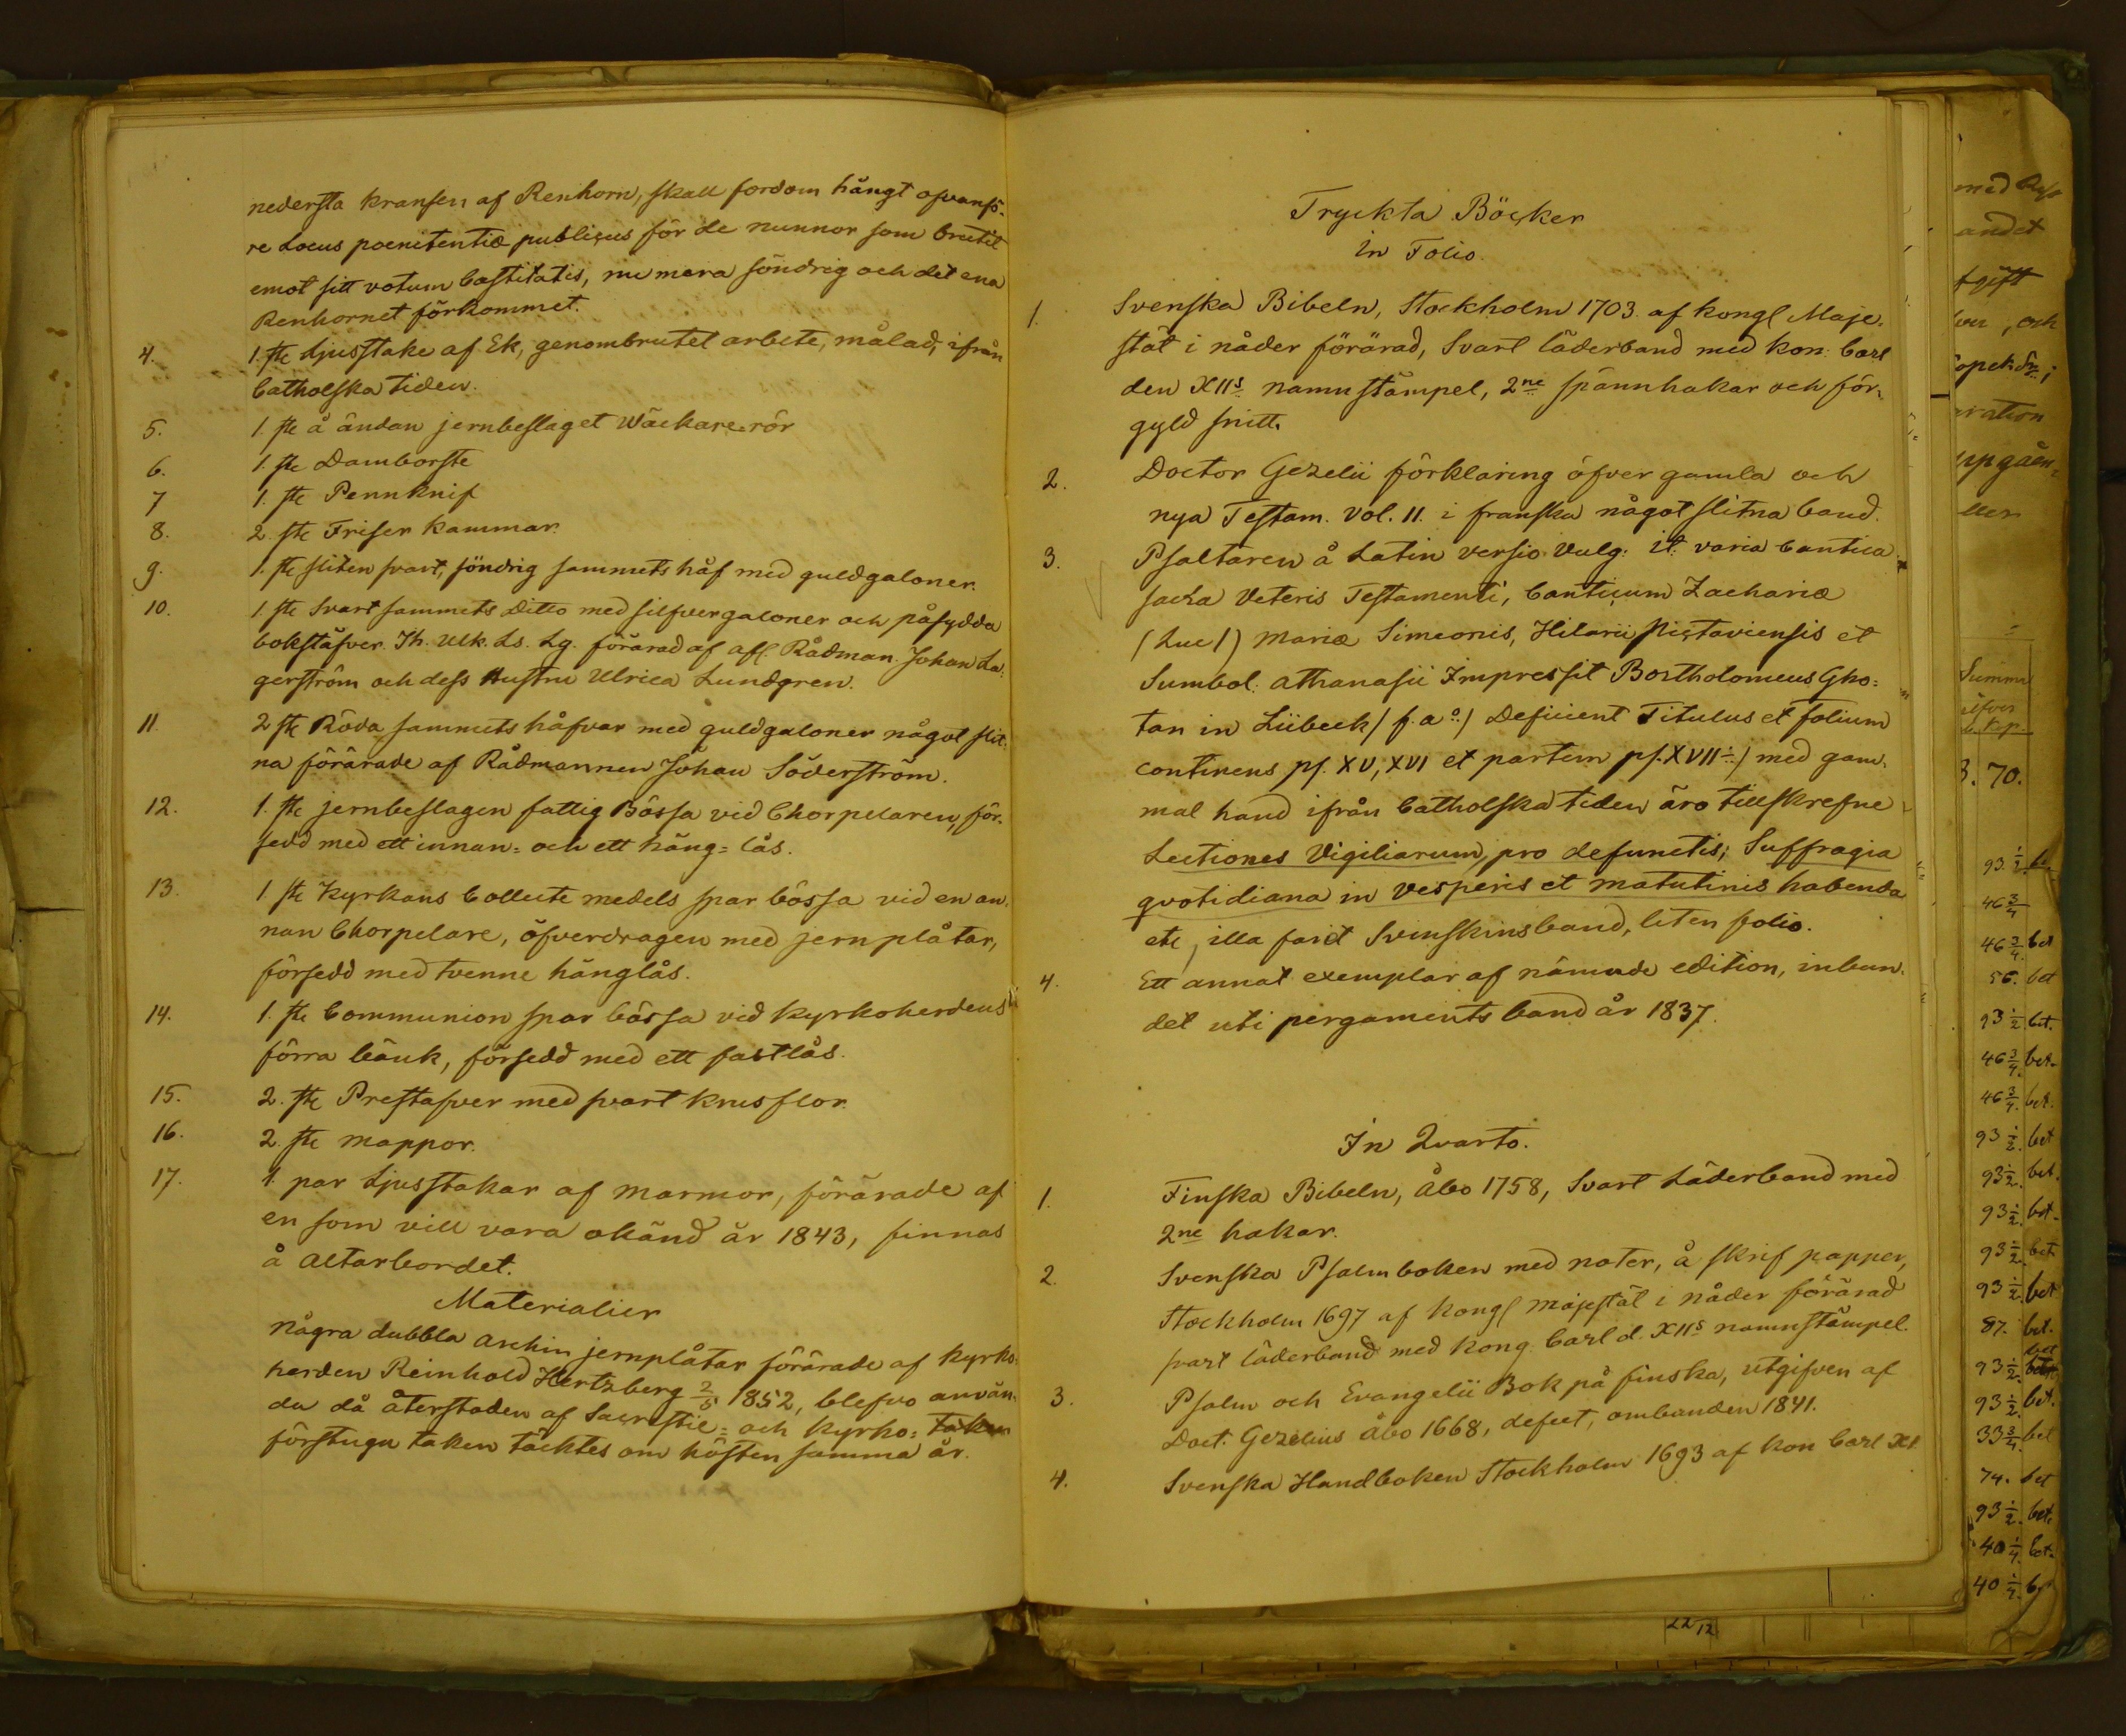 nedersta kransen af Renhorn, skall fordom hängt ofvanfö-
re Locus poenitentiæ publicus för de nunnor som brutit
emot sitt votum Castitatis, nu mera söndrig och det ena
Renhornet förkommet.
4. 1. st: Ljusstake af Ek, genombrutet arbete, målad, ifrån
Catholska tiden.
5. 1. st: å ändan jernbeslaget Wäckare-rör
6. 1. st: Damborste
7 1. st: Pennknif
8. 2. st: Friser kammar.
9. 1. st: sliten svart, söndrig sammets håf med guldgaloner.
10. 1. st: Svart sammets Ditto med silfvergaloner och påsydda
bokstäfver. Jh. Ulk. Ls. Lg. förärad af afl. Rådman Johan La-
gerström och dess Hustru Ulrica Lundgren.
11. 2 st: Röda sammets håfvar med guldgaloner något slit-
na förärade af Rådmannen Johan Söderström.
12. 1. st: jernbeslagen fattig Bössa vid Chorpelaren, för-
sedd med ett innan= och ett häng= lås.
13. 1 st: Kyrkans Collecte medels spar bössa vid en an-
nan Chorpelare, öfverdragen med jern plåtar,
försedd med tvenne hänglås.
14. 1. st: Communion spar bössa vid Kyrkoherdens
förra bänk, försedd med ett fastlås.
15. 2. st: Prestafver med svart krusflor.
16. 2. st: mappor.
17. 1. par Ljusstakar af marmor, förärade af
en som vill vara okänd år 1843, finnas
å Altarbordet.
Materialier
några dubbla Arshin jernplåtar förärade af Kyrko-
herden Reinhold Hertzberg 2/5 1852, blefvo använ-
da då återstoden af Sacristie= och Kyrko= taken
förstugu taken täcktes om hösten samma år.
Tryckta Böcker
in Folio.
1. Svenska Bibeln, Stockholm 1703. af Kongl Maje-
stät i nåder förärad, Svart läderband med Kon: Carl
den XIIs namnstämpel, 2ne spännhakar och för-
gyld snitt.
2. Doctor Gezelii förklaring öfver gamla och
nya Testam. Vol. II. i franska något slitna band.
3. Psaltaren å Latin versio Vulg: it: varia Cantica
sacra Veteris Testamenti, Canticum Zachariæ
(Luc 1) Mariæ Simeonis, Hilarii Pictaviensis et
Sumbol: Athanasii Impressit Bartholomeus Gho=
tan in Lübeck / s. ao / Deficient Titulus et folium
continens ps. XV, XVI et partem ps. XVII / med gam-
mal hand ifrån Catholska tiden äro tillskrefne
Lectiones Vigiliarum, pro defunctis; Suffragia
qvotidiana in vesperis et matutinis habenda
etc, illa farit Svinskinsband, liten folio.
4. Ett annat exemplar af nämnde edition, inbun-
det uti pergaments band år 1837.
In Qvarto.
1. Finska Bibeln, Åbo 1758, Svart Läderband med
2ne hakar.
2. Svenska Psalmboken med noter, å skrif papper,
Stockholm 1697 af Kongl majestät i nåder förärad
svart läderband med Kong Carl d. XIIs namnstämpel.
3. Psalm och Evangelii Bok på finska, utgifven af
Doct. Gezelius Åbo 1668, defect, ombunden 1841.
4. Svenska Handboken Stockholm 1693 af Kon Carl XI
andet
ration
ller
Summa
Kop.
3. 70.
93 1/2
46 3/4
46 3/4. bet
56. bet
93 1/2 bet.
46 3/4. bet.
46 3/4. bet.
93 1/2. bet
93 1/2. bet.
93 1/2. bet.
93 1/2. bet
93 1/2. bet
87. bet.
93 1/2. bet
93 1/2. bet.
33 3/4. bet
74. bet
93 1/2. bet.
40 1/4. bet.
40 1/4.
22/12